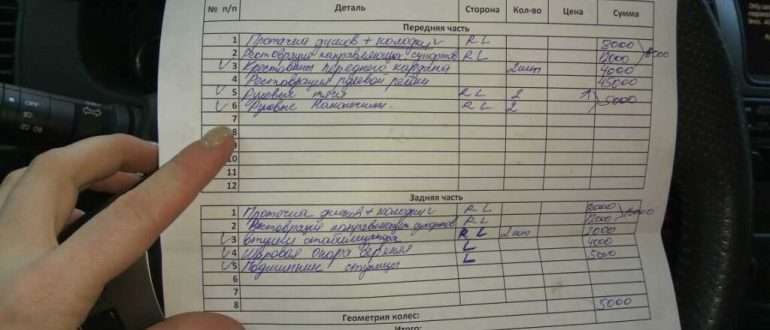 № п/п Деталь Сторона Кол-во Цена Сумма
Передняя часть
1 Проточка дисков + колодки R L 8000
2 Реставрация направляющих суппортов R L
3 переднего кардана 2шт 4000
4 Реставрация рулевой рейки 45000
5 Рулевые тяги R L 2 5000
6 Рулевые Наконечники R L 2
7
8
9
10
11
12
Задняя часть
1 Проточка дисков + колодки R L 8000
2 Реставрация направляющих суппортов R L
3 втулки стабилизатора R L 2шт
4 Шаровая опора верхняя L 4000
5 Подшипник ступицы L 5000
6
7
8 5000
Геометрия колес:
Итого: